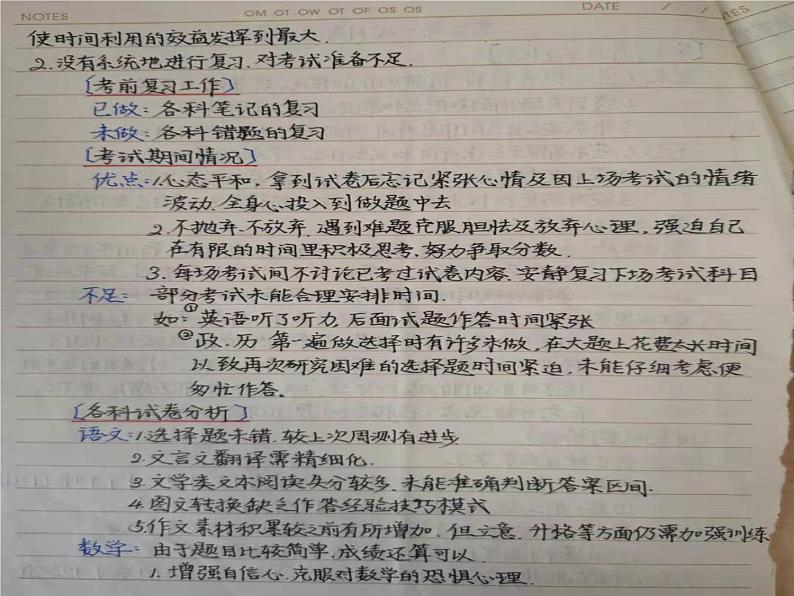 NOTES OM OT OW OT OF OS OS DATE / /
使时间利用的效益发挥到最大.
2.没有系统地进行复习.对考试准备不足.
[考前复习工作]
已做:各科笔记的复习
未做:各科错题的复习
[考试期间情况]
优点:1.心态平和,拿到试卷后忘记紧张心情及因上场考试的情绪
波动.全身心投入到做题中去
2.不抛弃.不放弃.遇到难题克服胆怯及放弃心理,强迫自己
在有限的时间里积极思考.努力争取分数.
3.每场考试间不讨论已考过试卷内容.安静复习下场考试科目
不足:部分考试未能合理安排时间.
如:①英语听了听力.后面试题作答时间紧张
②政、历 第一遍做选择时有许多未做,在大题上花费太长时间
以致再次研究困难的选择题时间紧迫,未能仔细考虑便
匆忙作答。
[各科试卷分析]
语文:1.选择题未错.较上次周测有进步
2.文言文翻译需精细化.
3.文学类文本阅读失分较多.未能准确判断答案区间.
4.图文转换缺乏作答经验技巧模式
5.作文素材积累较之前有所增加.但立意、升格等方面仍需加强训练
数学:由于题目比较简单,成绩还算可以.
1.增强自信心.克服对数学的恐惧心理.